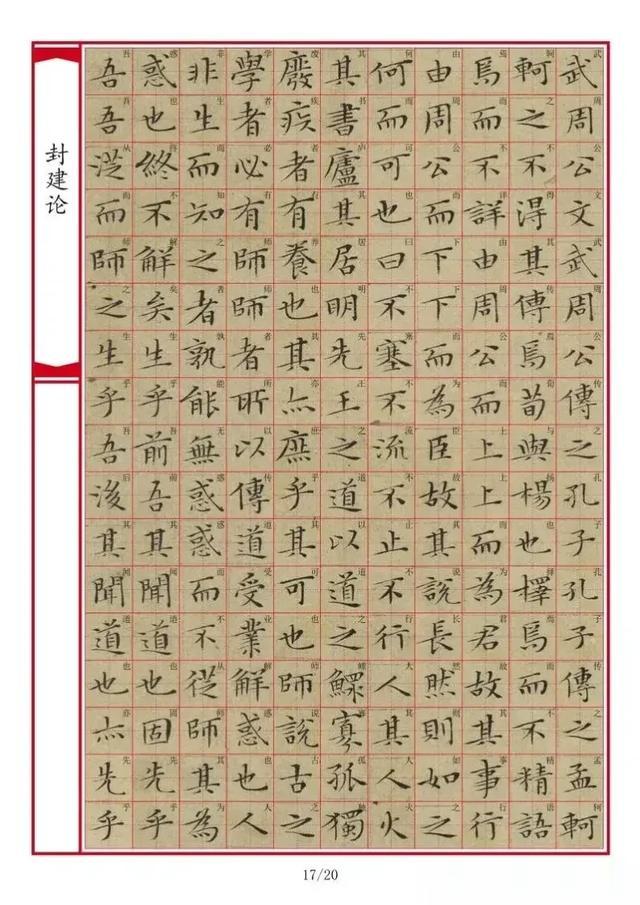 武周公文武周公傳之孔子孔子傳之孟軻
軻之不得其傳焉荀與楊也擇焉而不精語
焉而不詳由周公而上上而為君故其事行
由周公而下下而為臣故其說長然則如之
何而可也曰不塞不流不止不行人其人火
其書廬其居明先王之道以道之鰥寡孤獨
廢疾者有養也其亦庶乎其可也師說古之
學者必有師師者所以傳道受業解惑也人
非生而知之者孰能無惑惑而不從師其為
惑也終不解矣生乎前吾其聞道也固先乎
吾吾從而師之生乎吾後其聞道也亦先乎
封建论
17/20